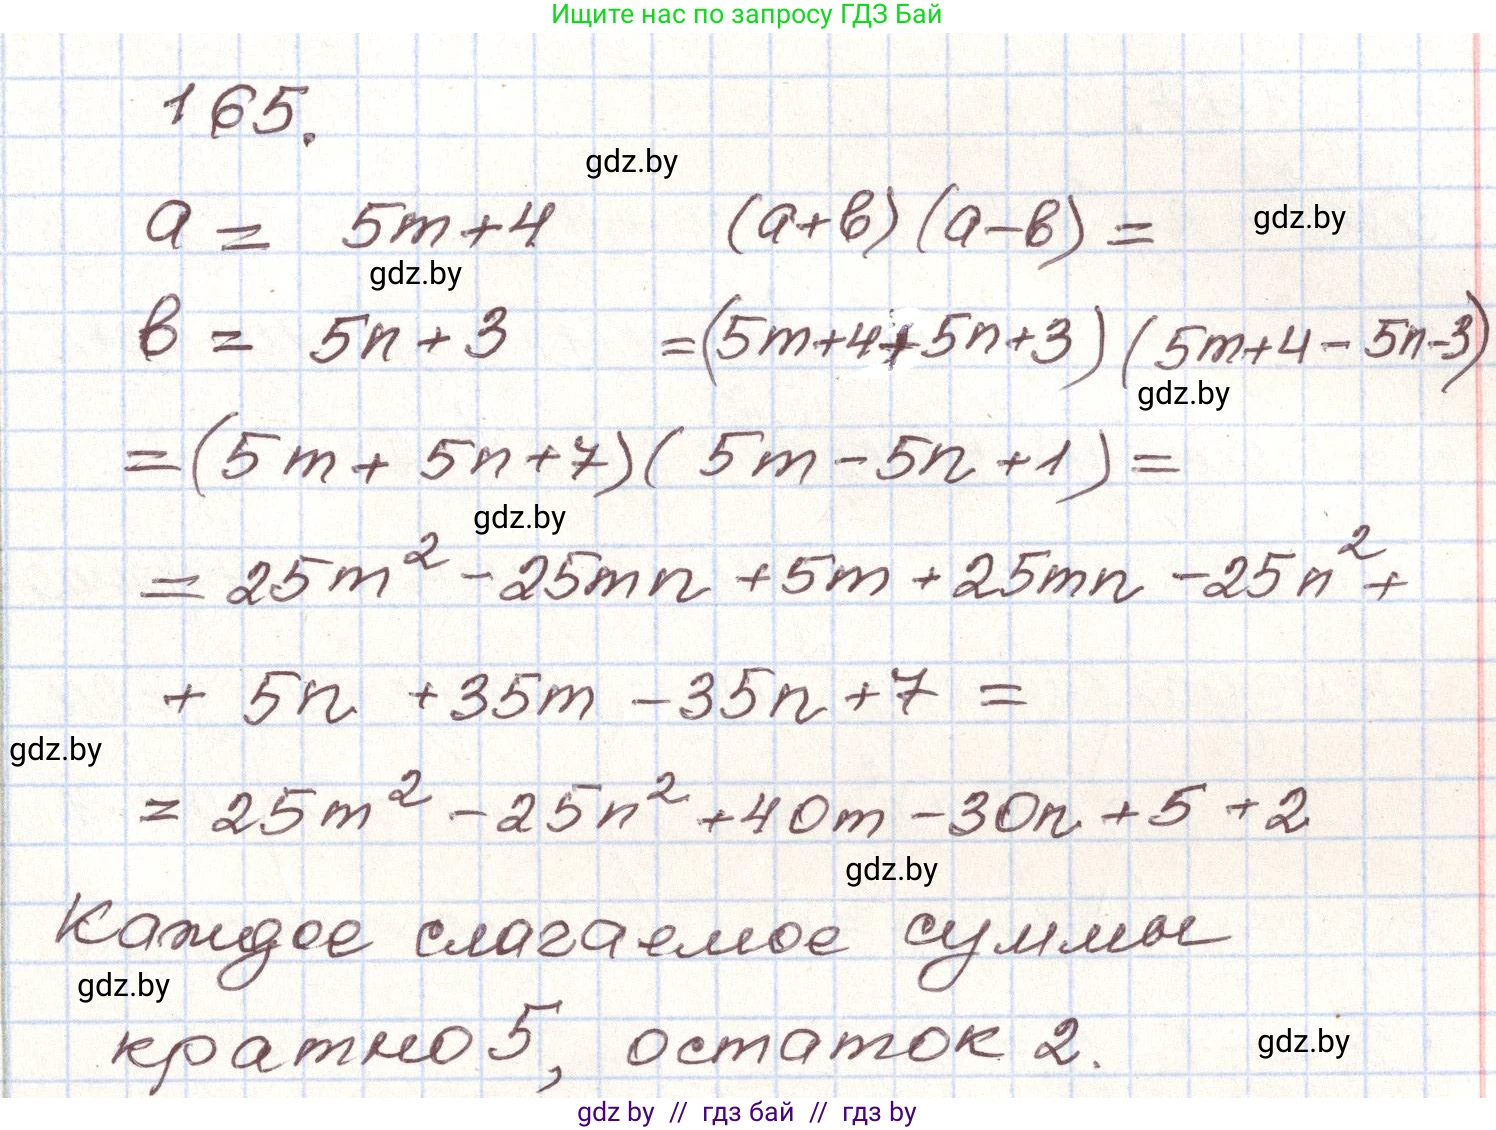 Ищите нас по запросу ГДЗ Бай
165.
gdz.by
a = 5m+4 (a+b)(a-b) = gdz.by
gdz.by
b = 5n+3 =(5m+4+5n+3)(5m+4-5n-3)
gdz.by
=(5m+5n+7)(5m-5n+1)=
gdz.by
= 25m² - 25mn + 5m + 25mn - 25n² +
+ 5n + 35m - 35n + 7 =
gdz.by
= 25m² - 25n² + 40m - 30n + 5 + 2
gdz.by
Каждое слагаемое суммы
gdz.by
кратно 5, остаток 2. gdz.by
gdz by // гдз бай // гдз by